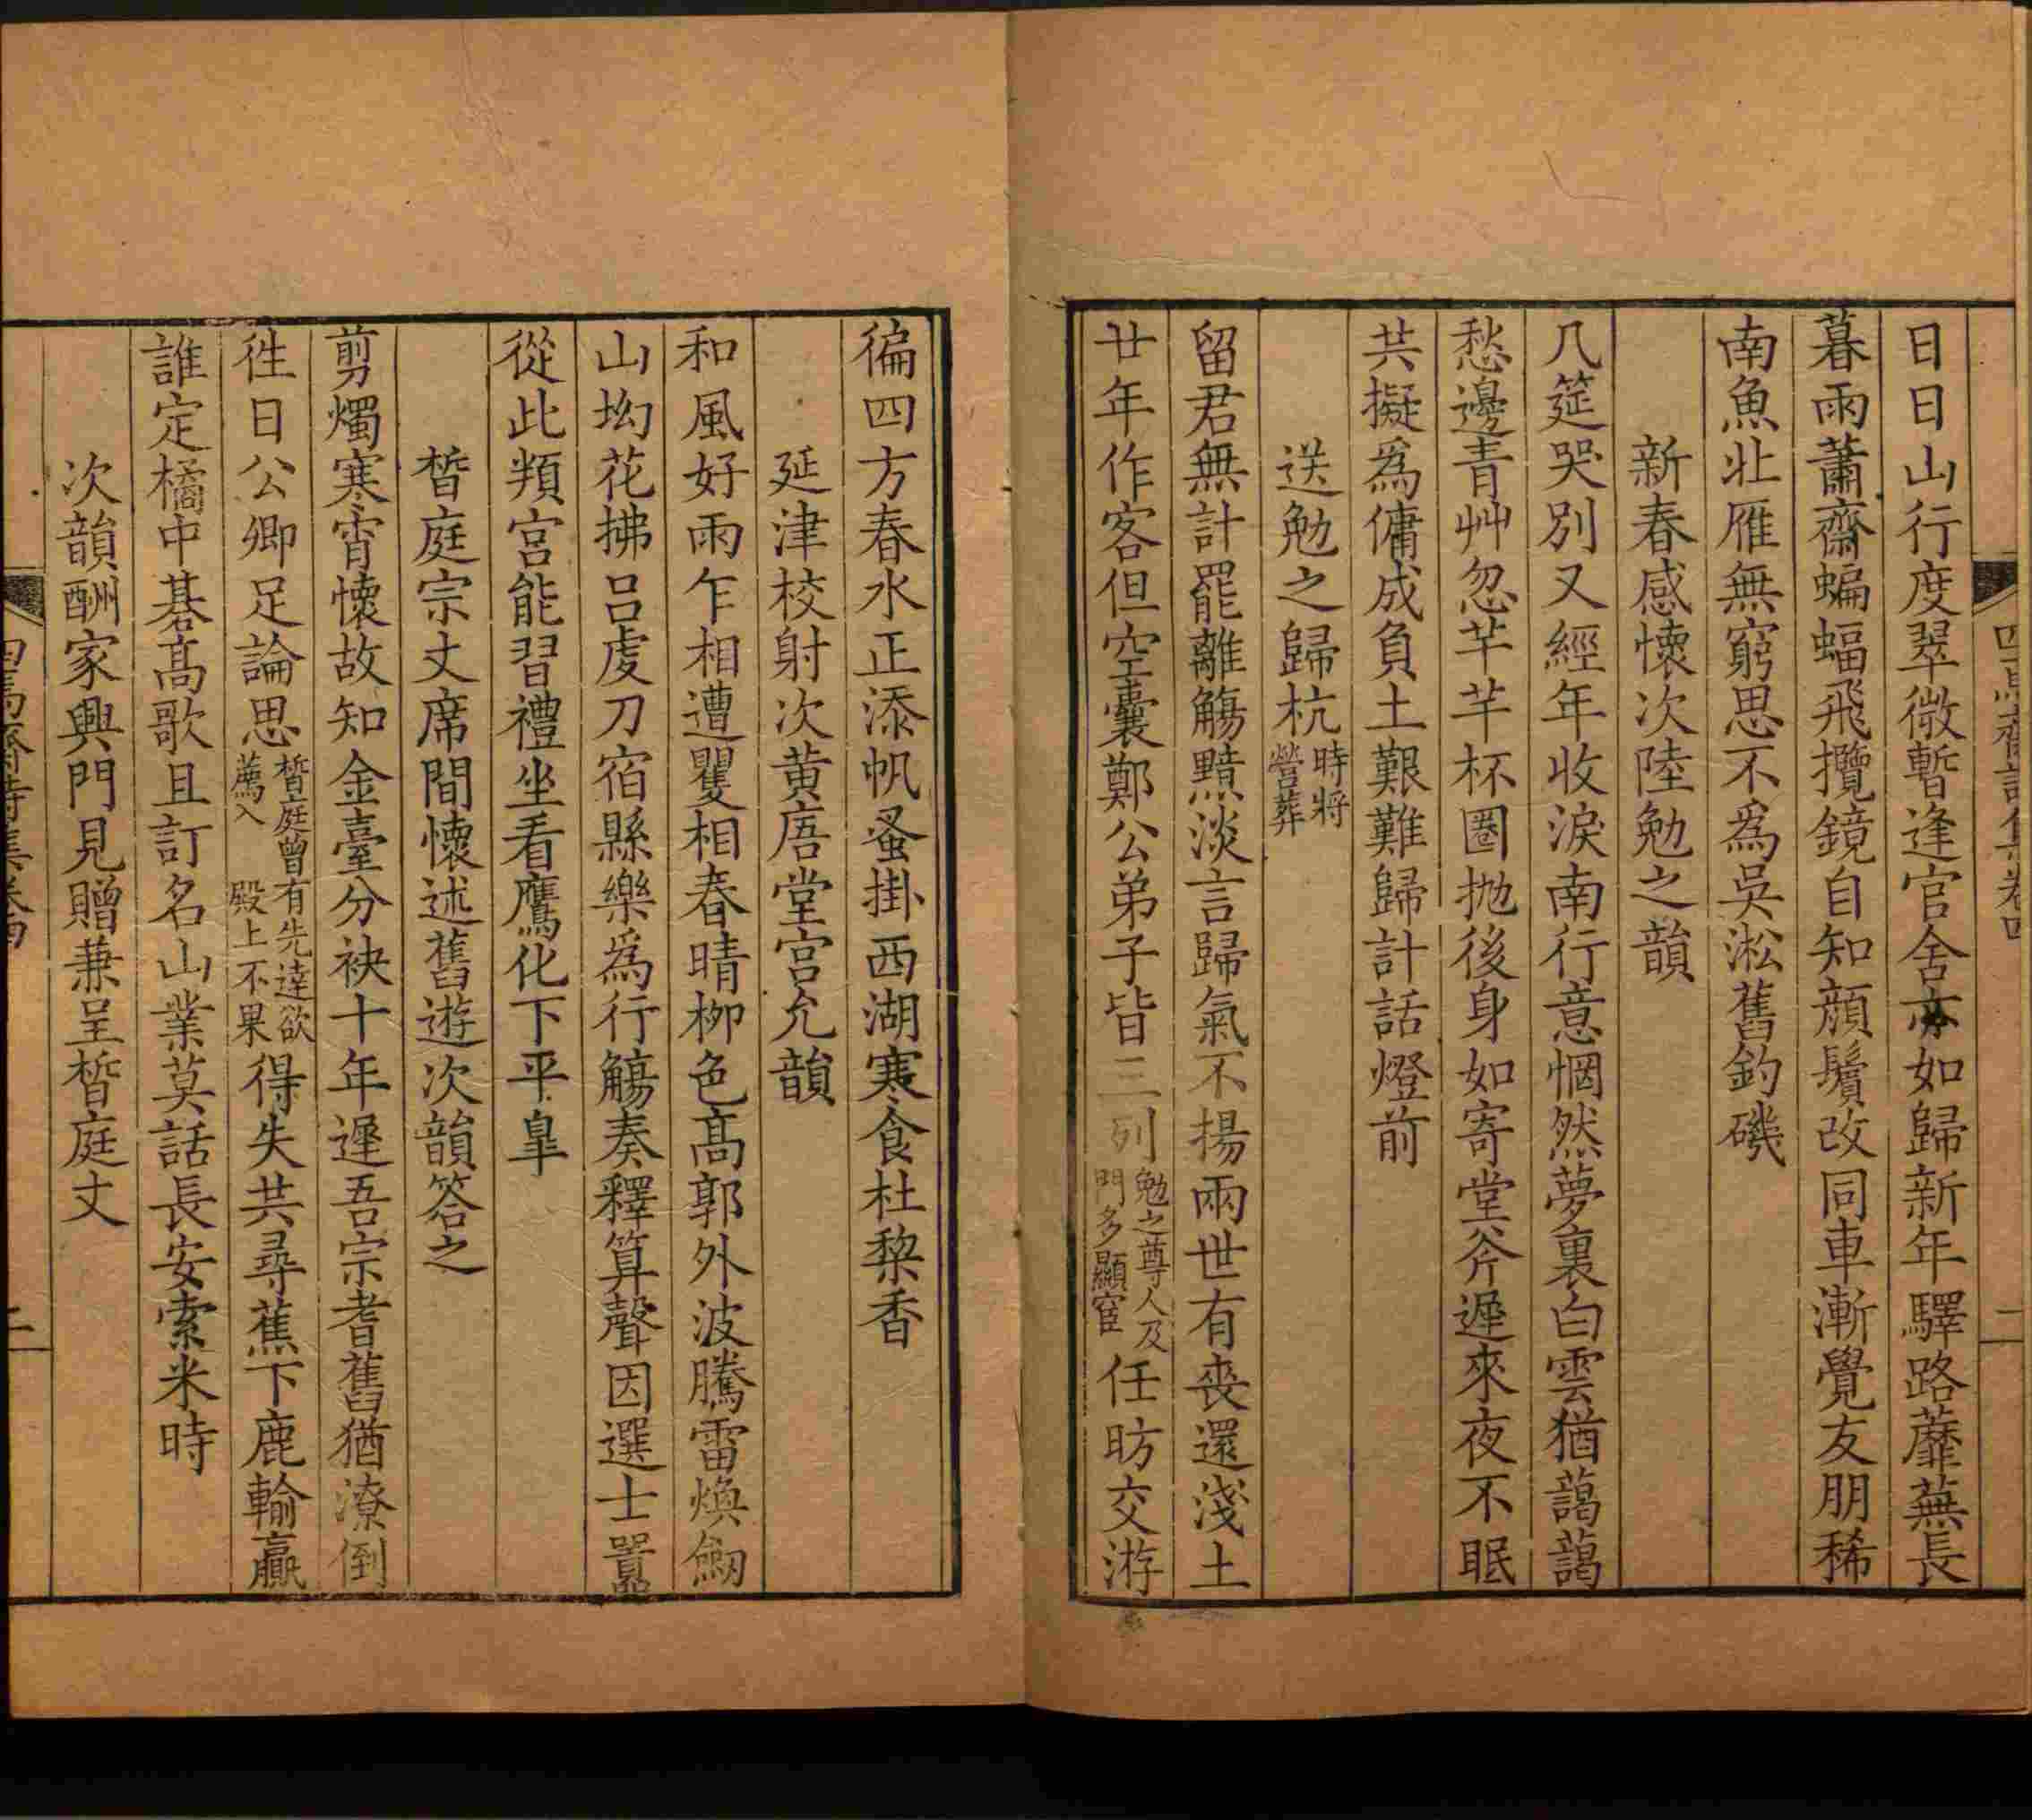 日日山行度翠微暫逢官舍亦如歸新年驛路蘼蕪長
暮雨蕭齋蝙蝠飛攬鏡自知顏鬢改同車漸覺友朋稀
南魚北雁無窮思不爲吳淞舊釣磯
新春感懷次陸勉之韻
几筵哭別又經年收淚南行意惘然夢裏白雲猶藹藹
愁邊青艸忽芊芊杯圈拋後身如寄堂斧遲來夜不眠
共擬爲傭成負土艱難歸計話燈前
送勉之歸杭時將營葬
留君無計罷離觴黯淡言歸氣不揚兩世有喪還淺土
廿年作客但空囊鄭公弟子皆三列勉之尊人及門多顯宦任昉交游
徧四方春水正添帆蚤掛西湖寒食杜梨香
延津校射次黃唐堂宮允韻
和風好雨乍相遭矍相春晴柳色高郭外波騰雷煥劒
山坳花拂呂虔刀宿縣樂爲行觴奏釋算聲因選士囂
從此頖宮能習禮坐看鷹化下平皐
晳庭宗丈席間懷述舊遊次韻答之
剪燭寒宵懷故知金臺分袂十年遲吾宗耆舊猶潦倒
徃日公卿足論思晳庭曾有先達欲薦入殿上不果得失共尋蕉下鹿輸贏
誰定橘中棊高歌且訂名山業莫話長安索米時
次韻酬家興門見贈兼呈晳庭丈